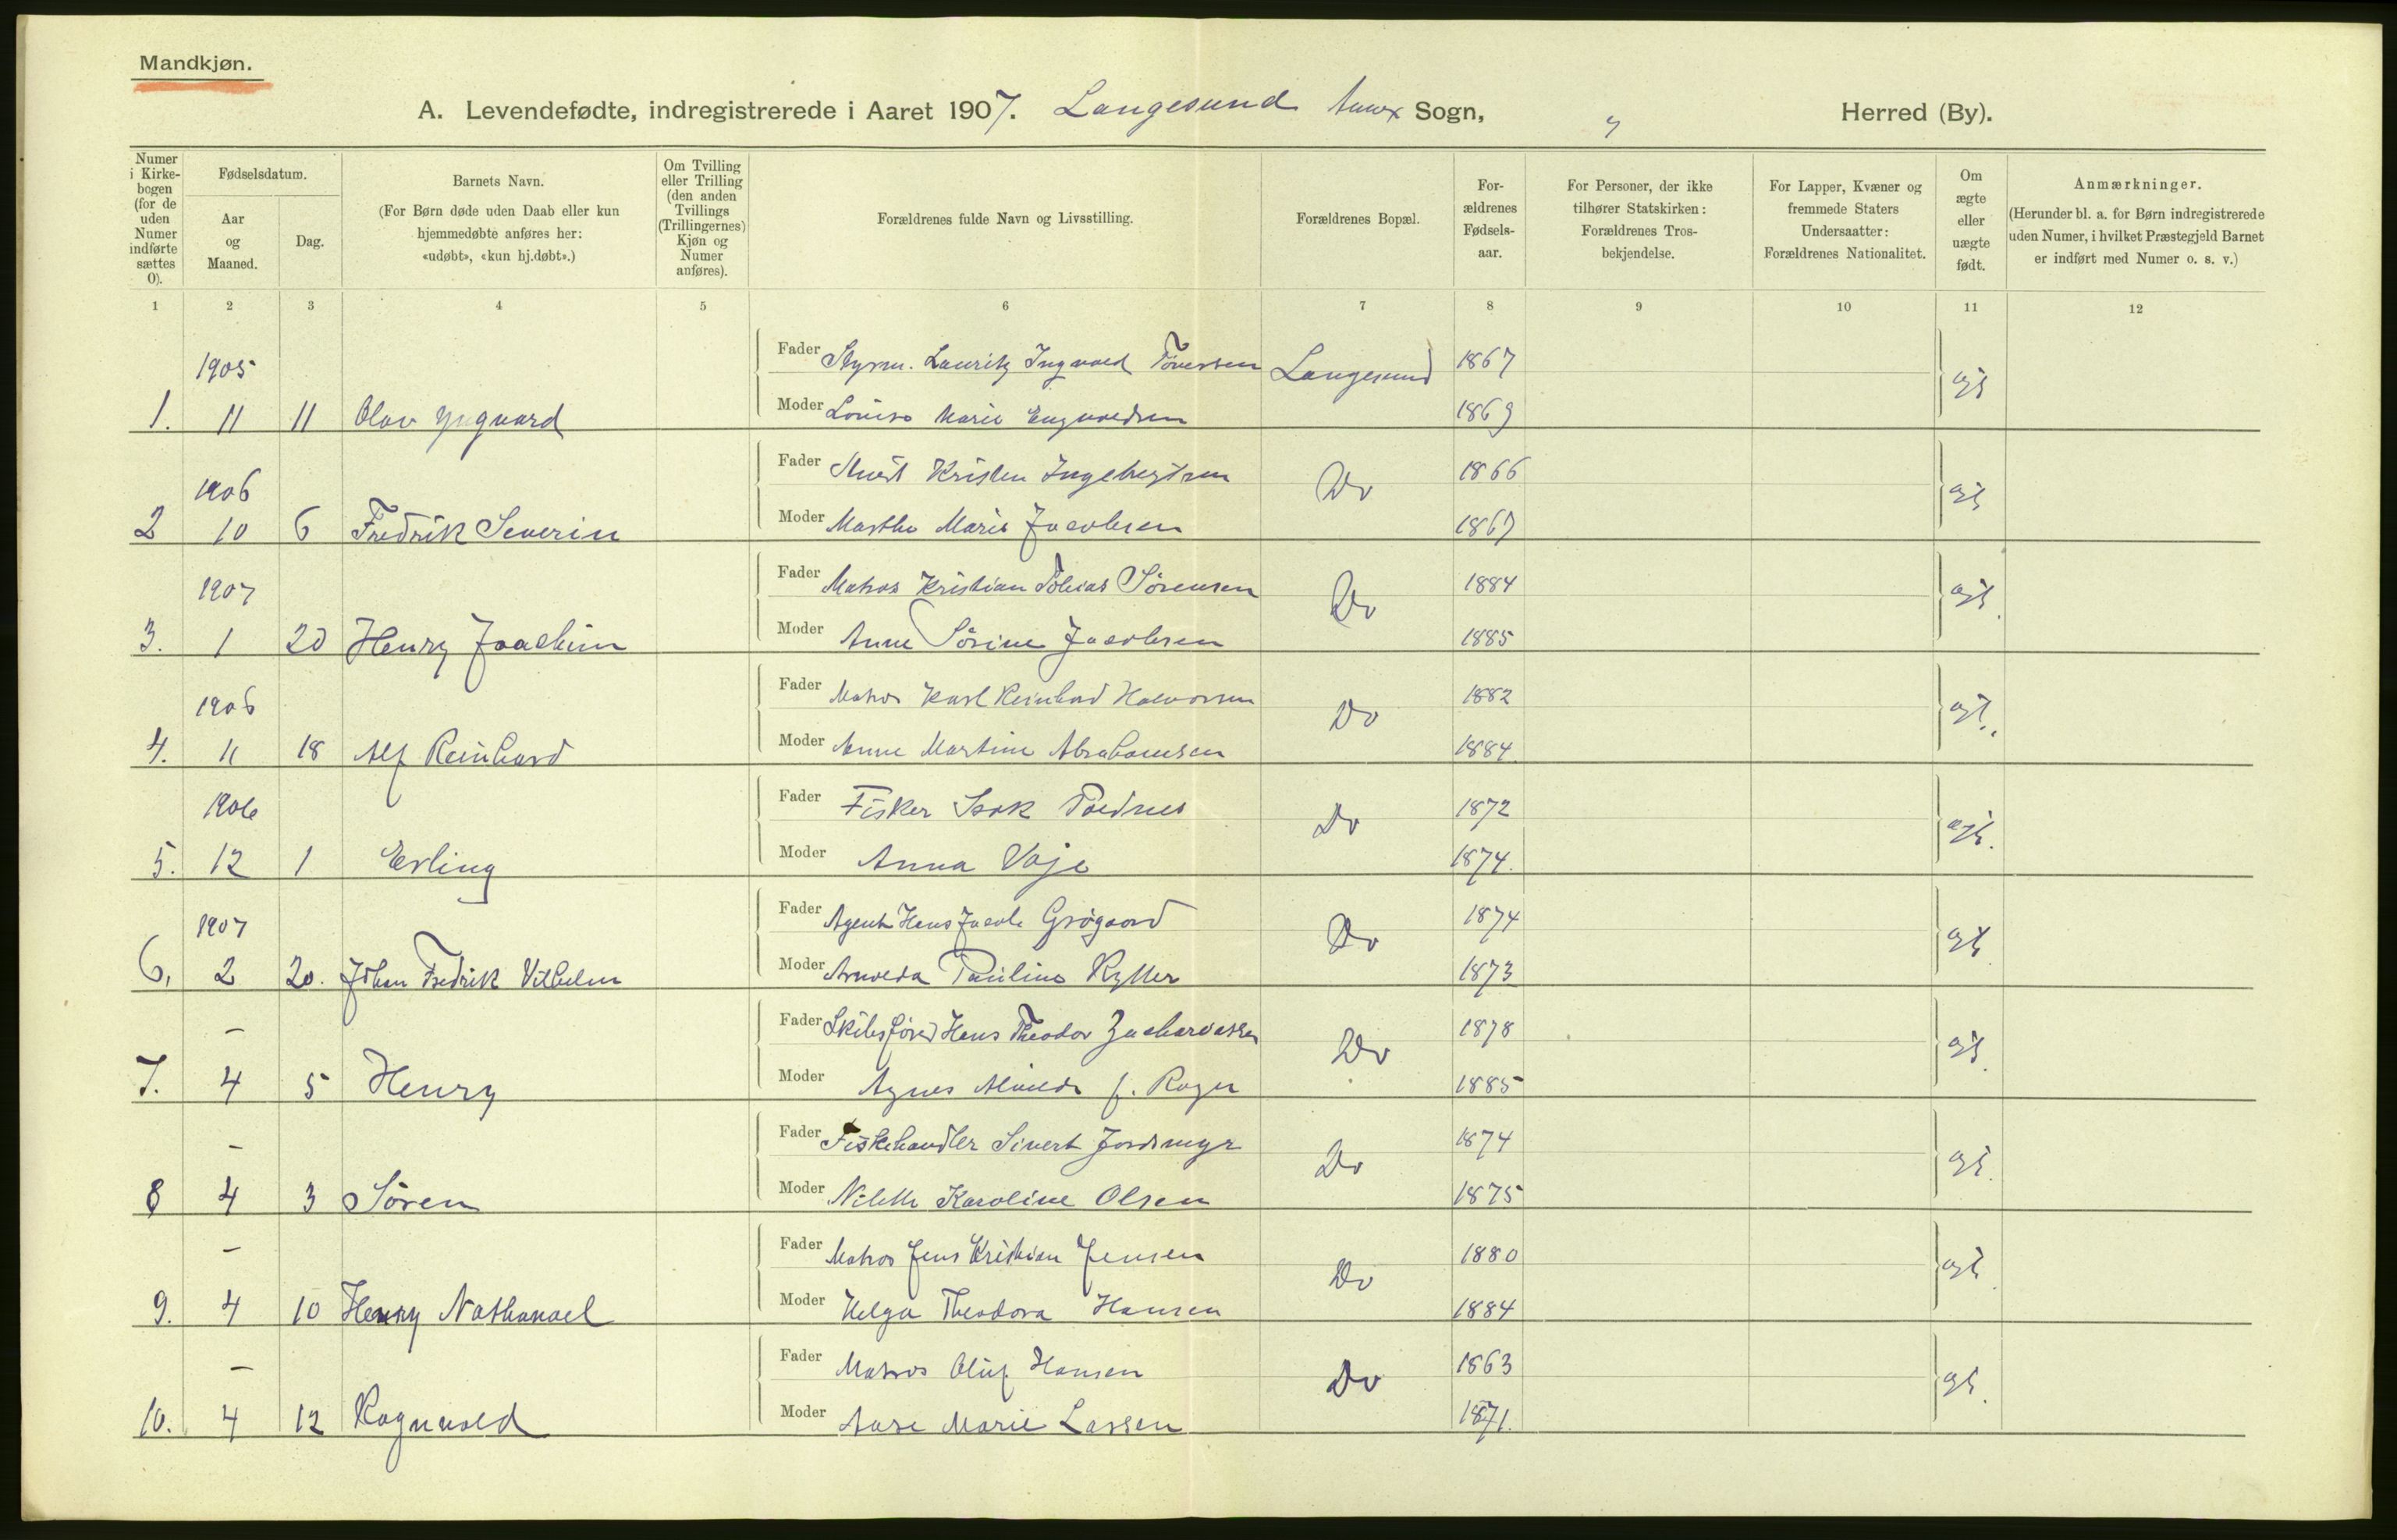 Mandkjøn.
A. Levendefødte, indregistrerede i Aaret 1907. Langesund Annex Sogn, " Herred (By).
Numer i Kirkebogen (for de uden Numer indførte sættes 0).
Fødselsdatum.
Aar og Maaned.
Dag.
Barnets Navn.
(For Børn døde uden Daab eller kun hjemmedøbte anføres her: «udøbt», «kun hj.døbt».)
Om Tvilling eller Trilling (den anden Tvillings (Trillingernes) Kjøn og Numer anføres).
Forældrenes fulde Navn og Livsstilling.
Forældrenes Bopæl.
Forældrenes Fødselsaar.
For Personer, der ikke tilhører Statskirken: Forældrenes Trosbekjendelse.
For Lapper, Kvæner og fremmede Staters Undersaatter: Forældrenes Nationalitet.
Om ægte eller uægte født.
Anmærkninger.
(Herunder bl. a. for Børn indregistrerede uden Numer, i hvilket Præstegjeld Barnet er indført med Numer o. s. v.)
1 2 3 4 5 6 7 8 9 10 11 12
1905 Fader Styrm. Lauritz Ingvald Tønessen Langesund 1867 ægt
1. 11 11 Olav Yngvard Moder Lovise Marie Engvaldsen 1869
1906 Fader Kristen Ingebregtsen Do 1866 ægt
2 10 6 Fredrik Severin Moder Marthe Marie Jacobsen 1867
1907 Fader Matros Kristian Tobias Sørensen Do 1884 ægt.
3. 1 20 Henry Joachim Moder Anne Sørine Jacobsen 1885
1906 Fader Matros Karl Reinhard Halvorsen Do 1882 ægt.
4. 11 18 Alf Reinhard Moder Anne Martine Abrahamsen 1884
1906 Fader Fisker Isak Do 1872 ægt.
5. 12 1 Erling Moder Anna Voje 1874.
1907 Fader Agent Hans Jacob Grøgaard Do 1874 ægt
6. 2 20. Johan Fredrik Vilhelm Moder Paulino 1873
– Fader Skibsfører Hans Theodor Zachariassen Do 1878 ægt.
7. 4 5 Henry Moder Agnes f. 1885
– Fader Fiskehandler Sivert Jordsmyr Do 1874 ægt.
8 4 3 Søren Moder Karoline Olsen 1875
– Fader Matros Jens Kristian Jensen Do 1880 ægt
9. 4 10 Henry Nathanael Moder Helga Theodora Hansen 1884
– Fader Matros Oluf Hansen Do 1863 ægt.
10. 4 12 Ragnvald Moder Aase Marie Lassen 1871.